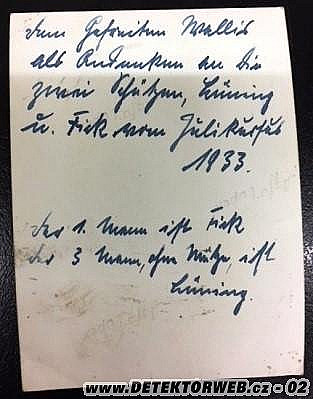 dem Gefreiten Wallis
als Andenken an die
zwei Schützen, Lüning
u. Fick vom Julikursus
1933.
der 1. Mann ist Fick
der 3 Mann, ohne Mütze, ist
Lüning.
www.DETEKTORWEB.cz - 02